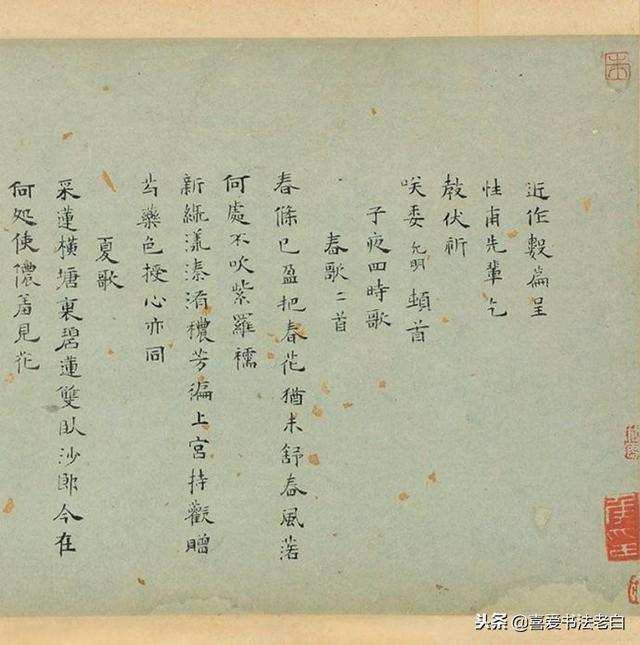 近作數篇呈
性甫先輩乞
教伏祈
咲委允明頓首
子夜四時歌
春歌二首
春條已盈把春花猶未舒春風落
何處不吹紫羅襦
新綠漾溱洧穠芳遍上宮持歡贈
芍藥色授心亦同
夏歌
采蓮橫塘裏碧蓮雙臥沙郎今在
何処使儂羞見花
头条 @喜爱书法老白